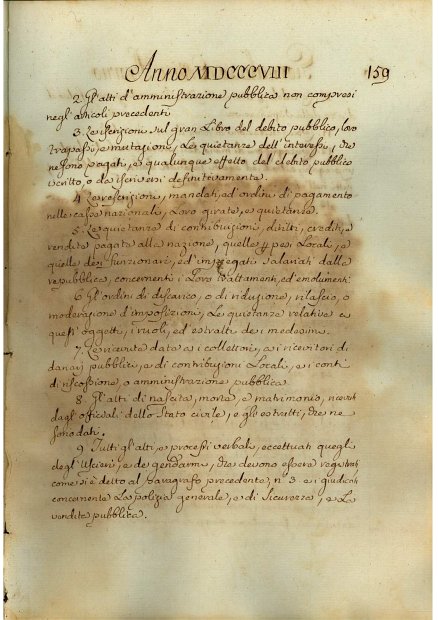 Anno MDCCCVIII 159
2. Gl'atti d'amministrazione pubblica non compresi
negli articoli precedenti
3. Le iscrizioni sul gran Libro del debito pubblico, loro
trapassi, e mutazione, Le quietanze dell'interessi, che
ne sono pagati, e qualunque effetto del debito pubblico
scritto, o da iscriversi definitivamente.
4. Le rescrizioni, mandati, ed ordini di pagamento
nelle casse nazionali, Loro girate, e quietanze.
5. Le quietanze di contribuzioni, diritti, crediti, e
vendite pagate alla nazione, quelle pesi Locali, e
quelle dei funzionari, ed impiegati salariati dalla
repubblica, concernenti i Loro trattamenti, ed emolumenti
6. Gl'ordini di discarico, o di riduzione, rilascio, o
moderazione d'imposizioni, Le quietanze relative a
questi oggetti, i ruoli, ed estratti dei medesimi.
7. Le ricevute date ai collettori, ai ricevitori di
danari pubblici, e di contribuzioni Locali, e i conti
di riscossione, o amministrazione pubblica.
8. Gl'atti di nascita, morte, e matrimonio, ricevuti
dagl'officiali dello Stato civile, e gl'estratti, che ne
sono dati.
9. Tutti gl'atti, e processi verbali, eccettuati quegli
degl'Uscieri, e de gendarmi, che devono essere registrati
come si è detto al paragrafo precedente, n° 3. e i giudicati
concernente La polizia generale, e di Sicurezza, e La
vendita pubblica.